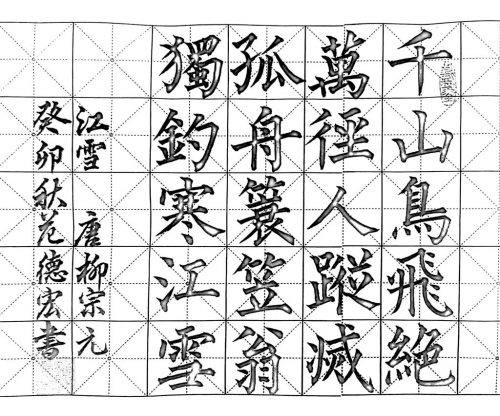 千山鳥飛絕
萬徑人蹤滅
孤舟簑笠翁
獨釣寒江雪
江雪 唐柳宗元
癸卯秋范德宏書